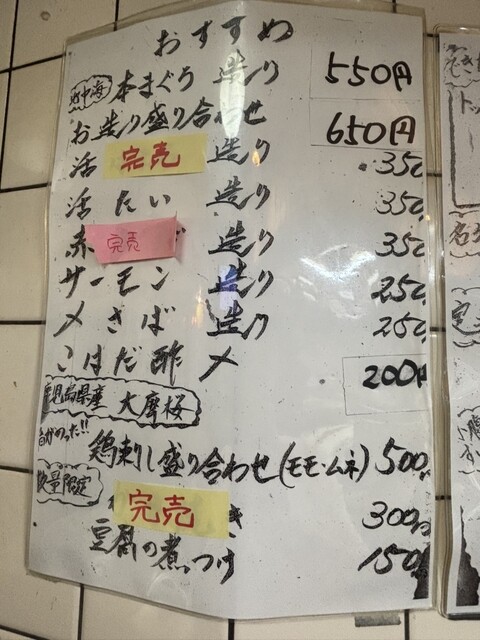 おすすめ
地中海 本まぐろ 造り 550円
お造り盛り合わせ 650円
活 完売 造り 350
活たい 造り 350
赤 完売 造り 350
サーモン 造り 250
〆さば 造り 250
こはだ酢〆 200円
鹿児島県産 大摩桜
鶏刺し盛り合わせ(モモ・ムネ) 500
数量限定
完売 き 300円
豆腐の煮つけ 150